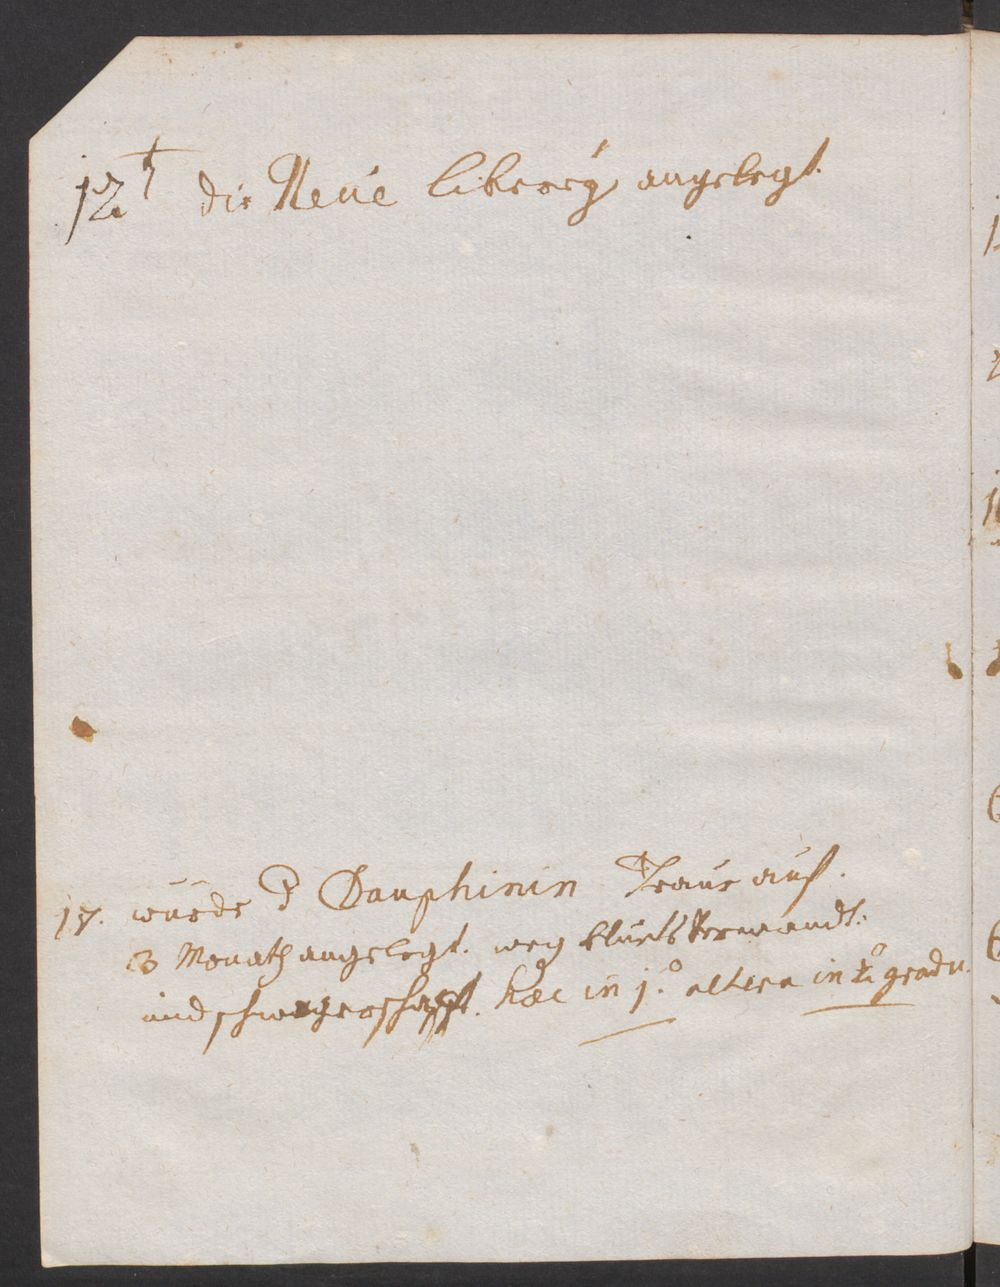 12t die Neúe librerÿ angelegt.
17. wurde d Dauphinin Traur auf
3 Monath angelegt. weg bluets Verwandt.
und schwagerschafft. haec in 1.o altera in 2o gradu.